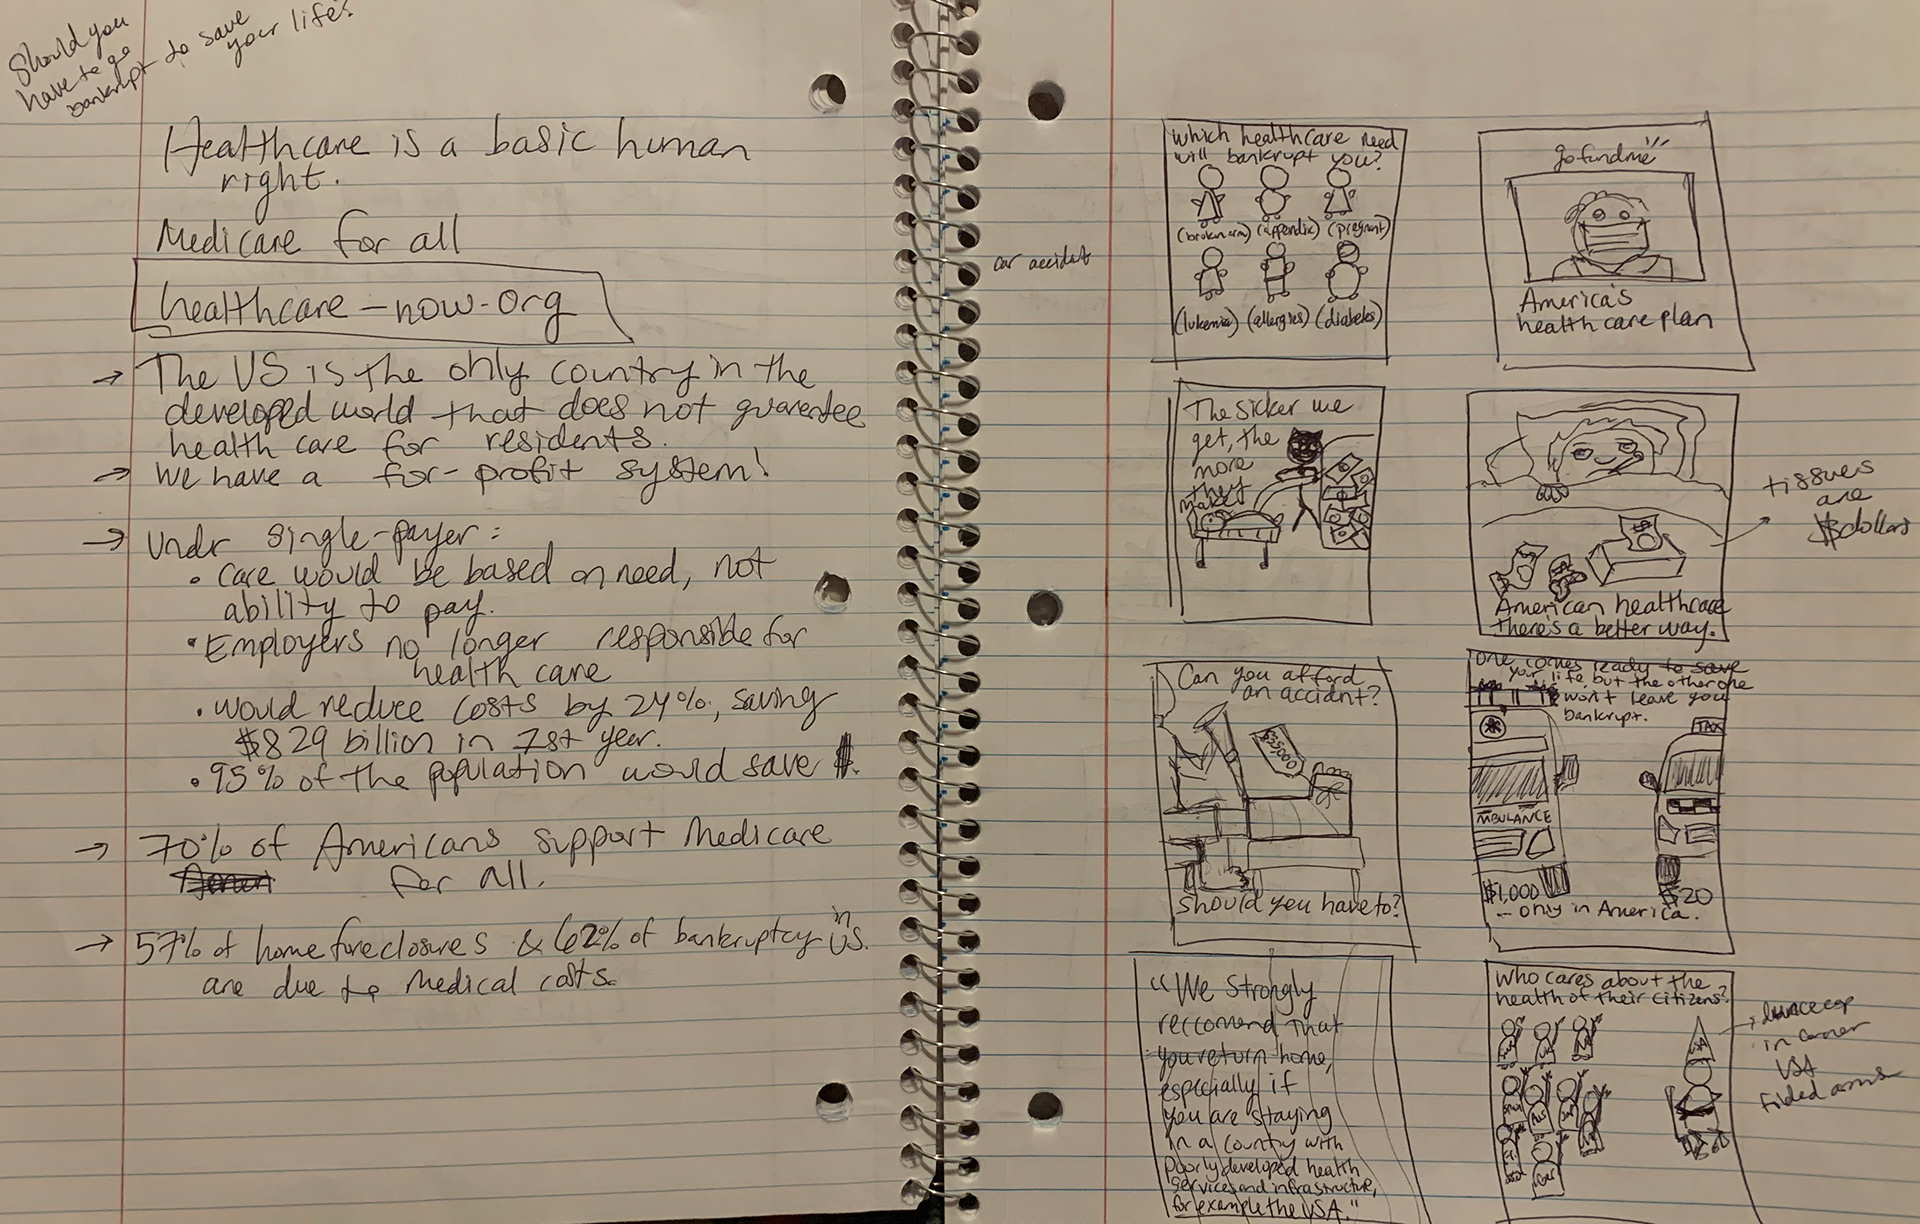 Should you
have to go
bankrupt to save
your life?
Healthcare is a basic human
right.
Medicare for all
healthcare-now.org
→ The US is the only country in the
developed world that does not guarentee
health care for residents.
→ We have a for-profit system!
→ Undr single-payer:
• Care would be based on need, not
ability to pay.
• Employers no longer responsible for
health care
• would reduce costs by 24%, saving
$829 billion in 1st year.
• 95% of the population would save $.
→ 70% of Americans support Medicare
for all.
→ 57% of home foreclosures & 62% of bankruptcy in US.
are due to Medical costs.
car accident
which healthcare need
will bankrupt you?
(broken arm) (appendix) (pregnant)
(lukemia) (allergies) (diabetes)
gofundme
America's
health care plan
The sicker we
get, the
more
they
make
tissues
are
$dollars
American healthcare
there's a better way.
Can you afford
an accidnt?
$35000
Should you have to?
One comes ready to save
your life, but the other one
won't leave you
bankrupt.
TAXI
AMBULANCE
$1,000
$20
- only in America.
"We strongly
reccomend that
you return home,
especially if
you are staying
in a country with
poorly developed health
services and infrastructure,
for example the USA."
Who cares about the
health of their citizens?
USA
dunce cap
in corner
USA
folded arms